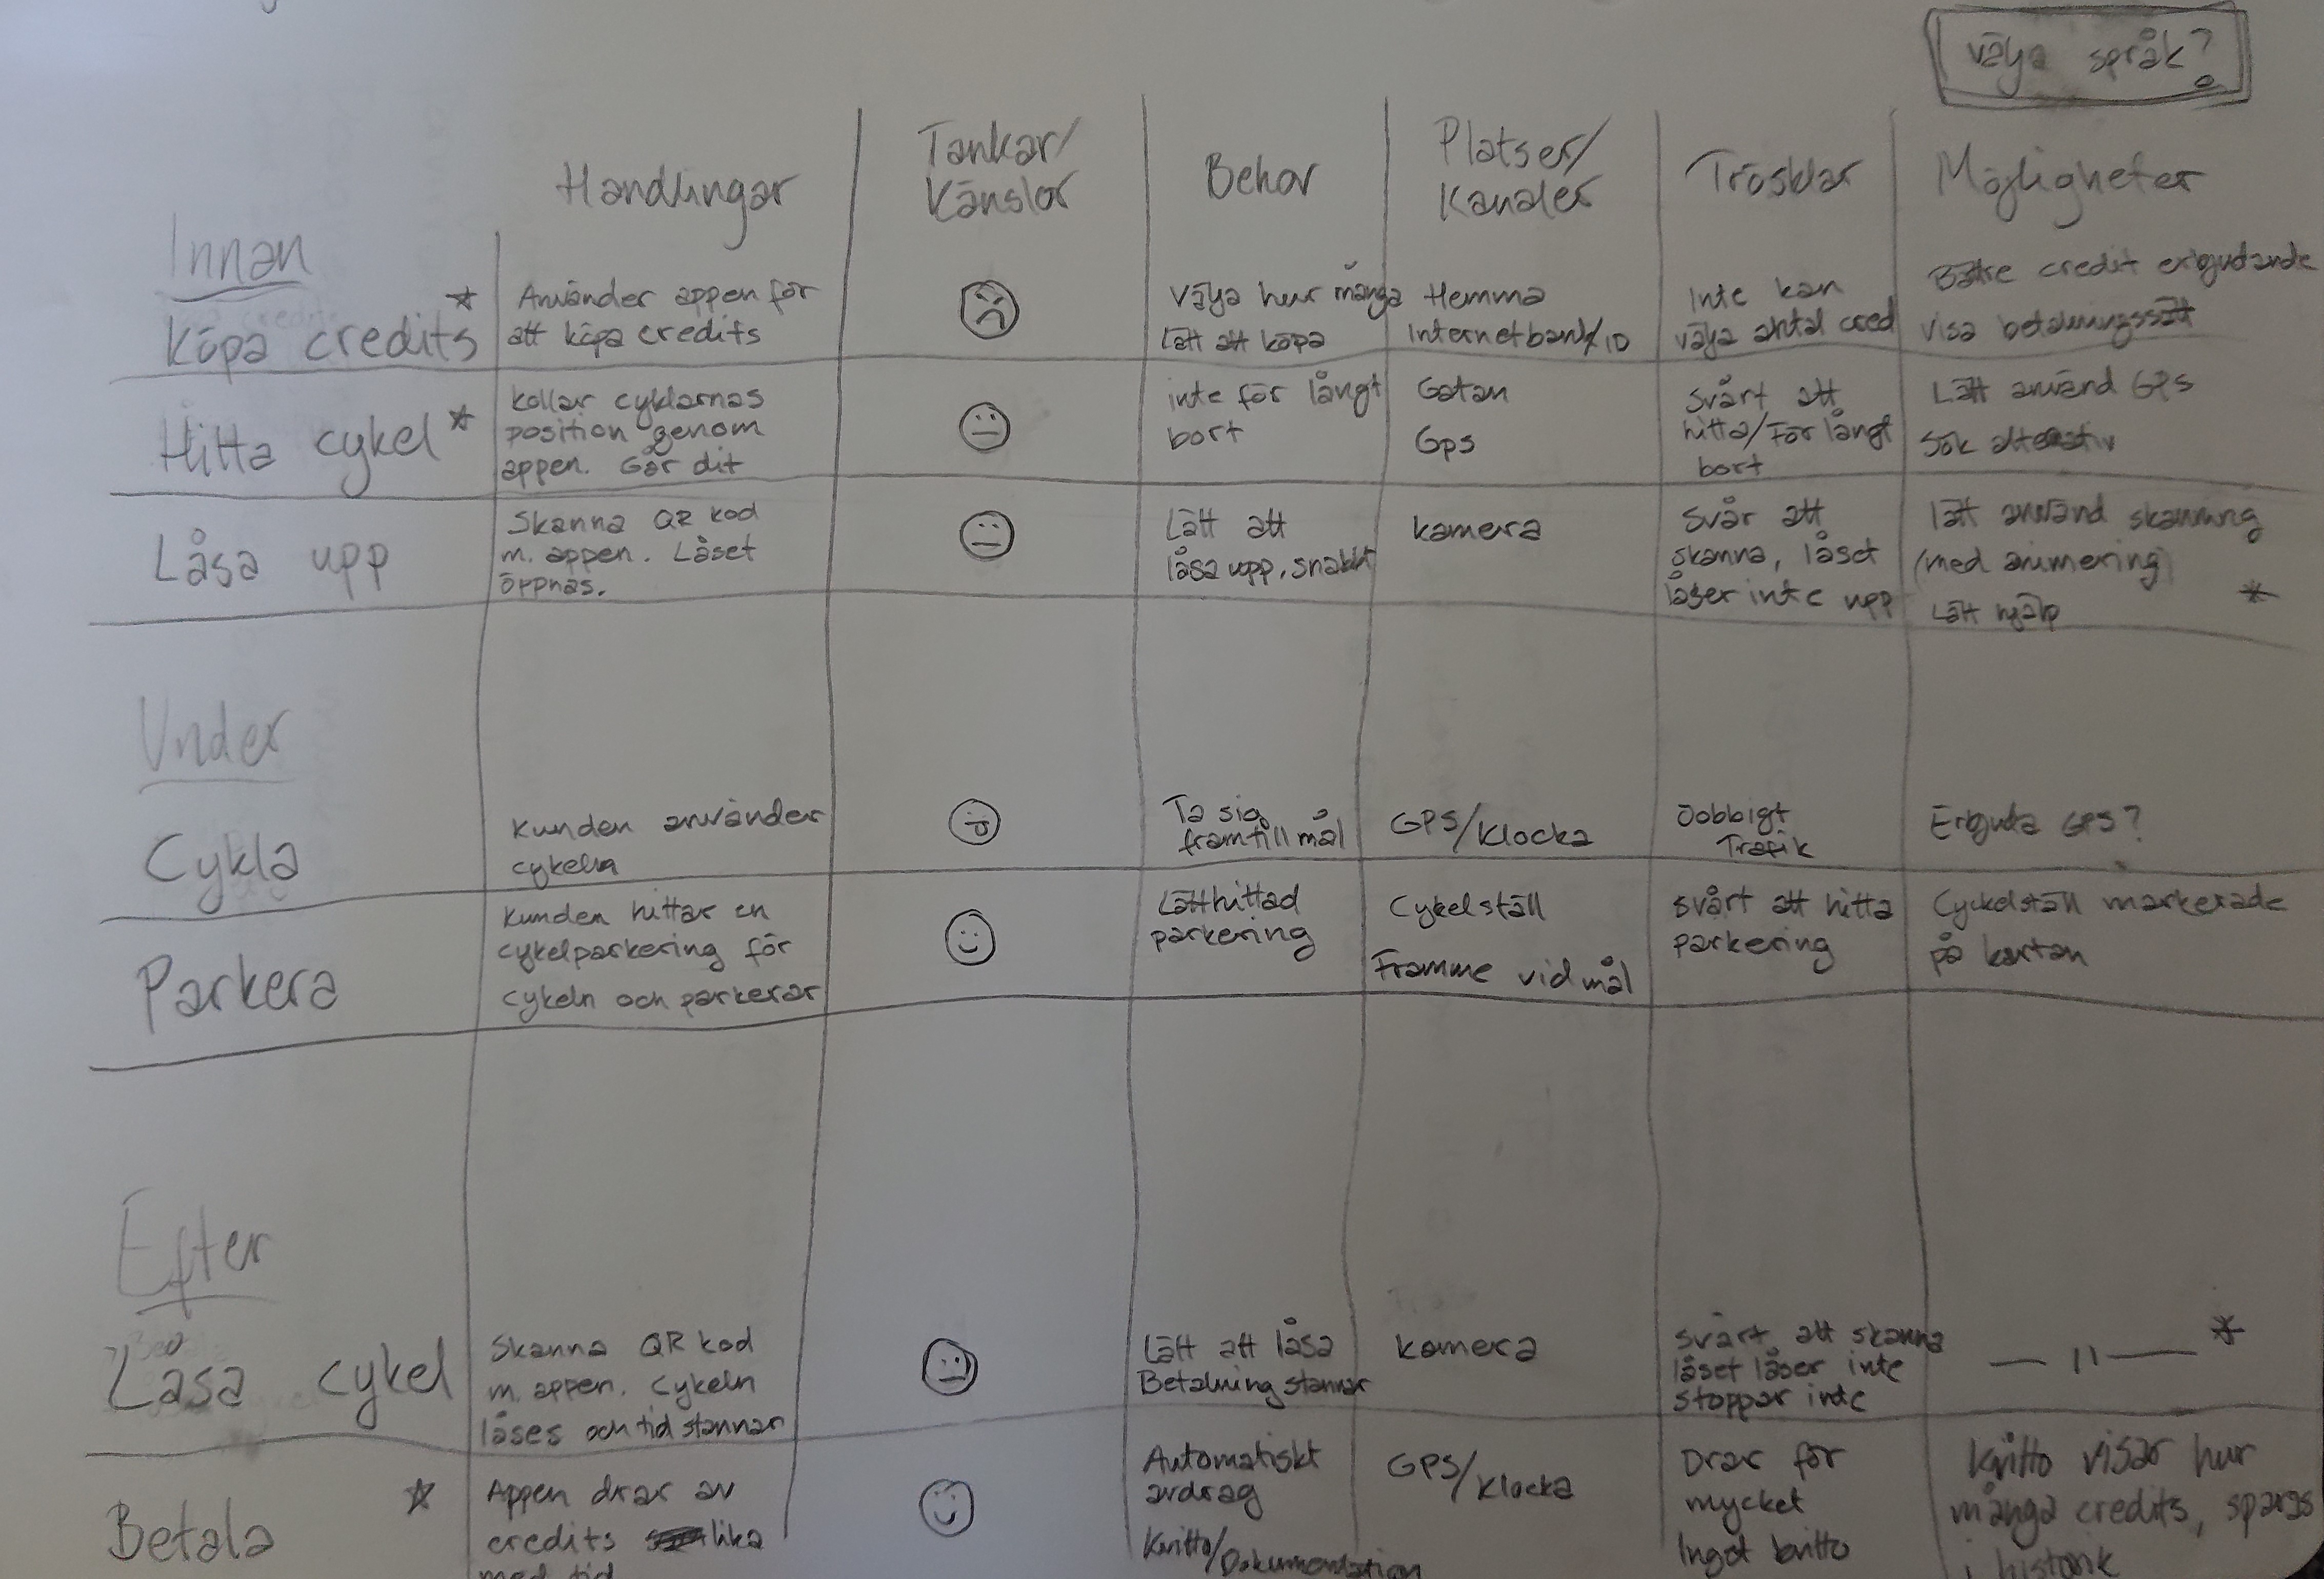 välja språk?
Handlingar
Tankar/
Känslor
Behov
Platser/
Kanaler
Trösklar
Möjligheter
Innan
Köpa credits *
Använder appen för
att köpa credits
Välja hur många
Lätt att köpa
Hemma
Internetbank/ID
Inte kan
välja antal cred
Bättre credit erbjudande
visa betalningssätt
Hitta cykel *
Kollar cyklarnas
position genom
appen. Går dit
inte för långt
bort
Gatan
Gps
Svårt att
hitta/För långt
bort
Lätt använd GPS
Sök alternativ
Låsa upp
Skanna QR kod
m. appen. Låset
öppnas.
Lätt att
låsa upp, snabbt
kamera
Svår att
skanna, låset
låser inte upp
lätt använd skanning
(med animering)
Lätt hjälp *
Under
Cykla
Kunden använder
cykeln
Ta sig
fram till mål
GPS/Klocka
Jobbigt
Trafik
Erbjuda GPS?
Parkera
Kunden hittar en
cykelparkering för
cykeln och parkerar
Lätthittad
parkering
Cykelställ
Framme vid mål
svårt att hitta
parkering
Cyckelställ markerade
på kartan
Efter
Låsa cykel
Skanna QR kod
m. appen. Cykeln
låses och tid stannar
Lätt att låsa
Betalning stannar
kamera
svårt att skanna
låset låser inte
stoppar inte
— 11 — *
Betala *
Appen drar av
credits lika
med tid
Automatiskt
avdrag
Kvitto/Dokumentation
GPS/Klocka
Drar för
mycket
Inget kvitto
Kvitto visar hur
många credits, sparas
i historik